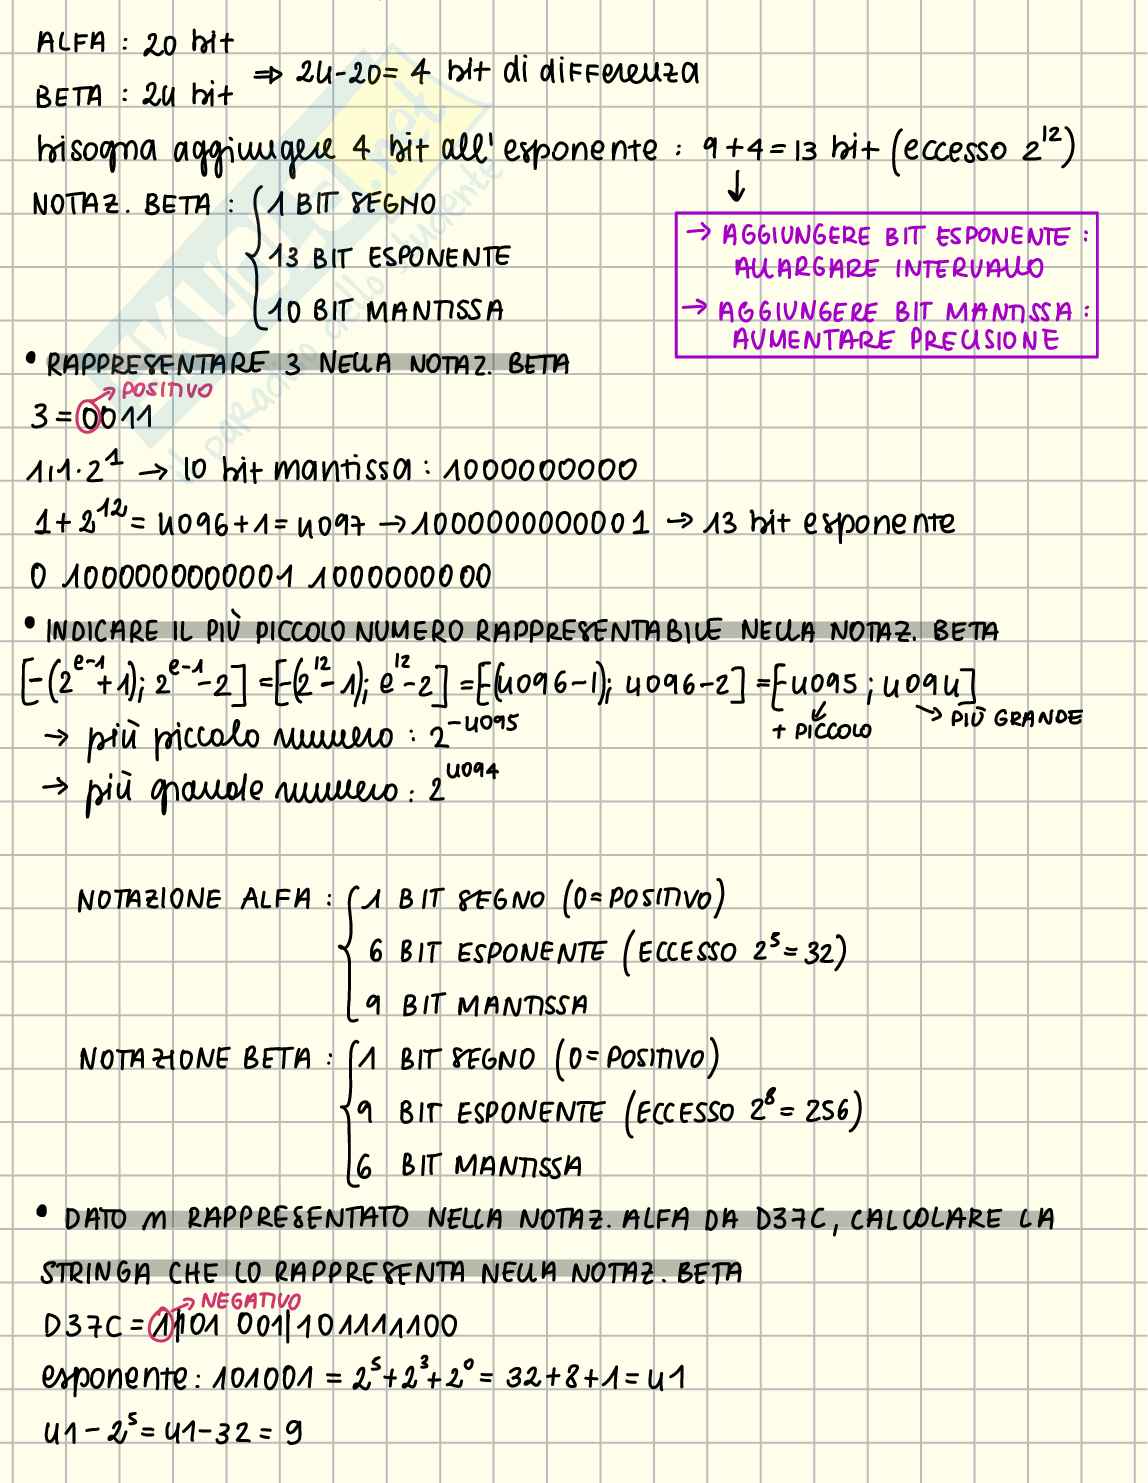 ALFA : 20 bit
BETA : 24 bit
⇒ 24-20= 4 bit di differenza
bisogna aggiungere 4 bit all'esponente : 9+4=13 bit (eccesso 2^12)
NOTAZ. BETA : { 1 BIT SEGNO
13 BIT ESPONENTE
10 BIT MANTISSA
→ AGGIUNGERE BIT ESPONENTE :
ALLARGARE INTERVALLO
→ AGGIUNGERE BIT MANTISSA :
AUMENTARE PRECISIONE
• RAPPRESENTARE 3 NELLA NOTAZ. BETA
→ POSITIVO
3 = 0011
1,1·2^1 → 10 bit mantissa : 1000000000
1+2^12 = 4096+1 = 4097 → 1000000000001 → 13 bit esponente
0 1000000000001 1000000000
• INDICARE IL PIÙ PICCOLO NUMERO RAPPRESENTABILE NELLA NOTAZ. BETA
[-(2^e-1+1); 2^e-1-2] = [-(2^12-1); e^12-2] = [-(4096-1); 4096-2] = [-4095 ; 4094]
+ PICCOLO
→ PIÙ GRANDE
→ più piccolo numero : 2^-4095
→ più grande numero : 2^4094
NOTAZIONE ALFA : { 1 BIT SEGNO (0=POSITIVO)
6 BIT ESPONENTE (ECCESSO 2^5=32)
9 BIT MANTISSA
NOTAZIONE BETA : { 1 BIT SEGNO (0=POSITIVO)
9 BIT ESPONENTE (ECCESSO 2^8=256)
6 BIT MANTISSA
• DATO m RAPPRESENTATO NELLA NOTAZ. ALFA DA D37C, CALCOLARE LA
STRINGA CHE LO RAPPRESENTA NELLA NOTAZ. BETA
→ NEGATIVO
D37C = 1|101 001|101111100
esponente : 101001 = 2^5+2^3+2^0 = 32+8+1 = 41
41-2^5 = 41-32 = 9